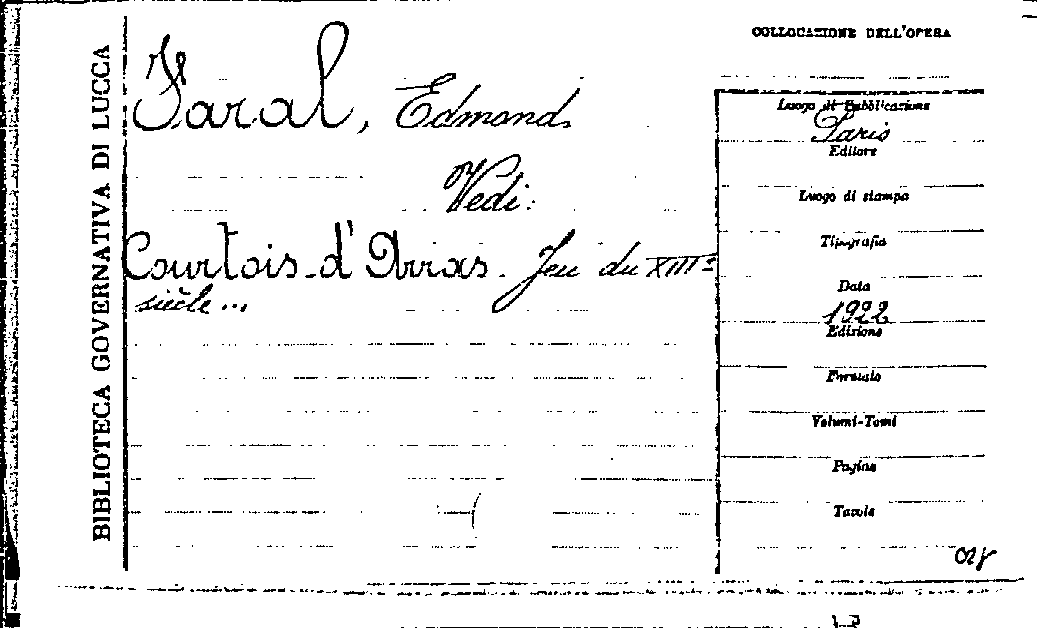 BIBLIOTECA GOVERNATIVA DI LUCCA
Faral, Edmond.
Vedi:
Courtois d'Arras. Jeu du XIIIe
siècle ...
COLLOCAZIONE DELL'OPERA
Luogo di Pubblicazione
Paris
Editore
Luogo di stampa
Tipografia
Data
1922
Edizione
Formato
Volumi-Tomi
Pagine
Tavole